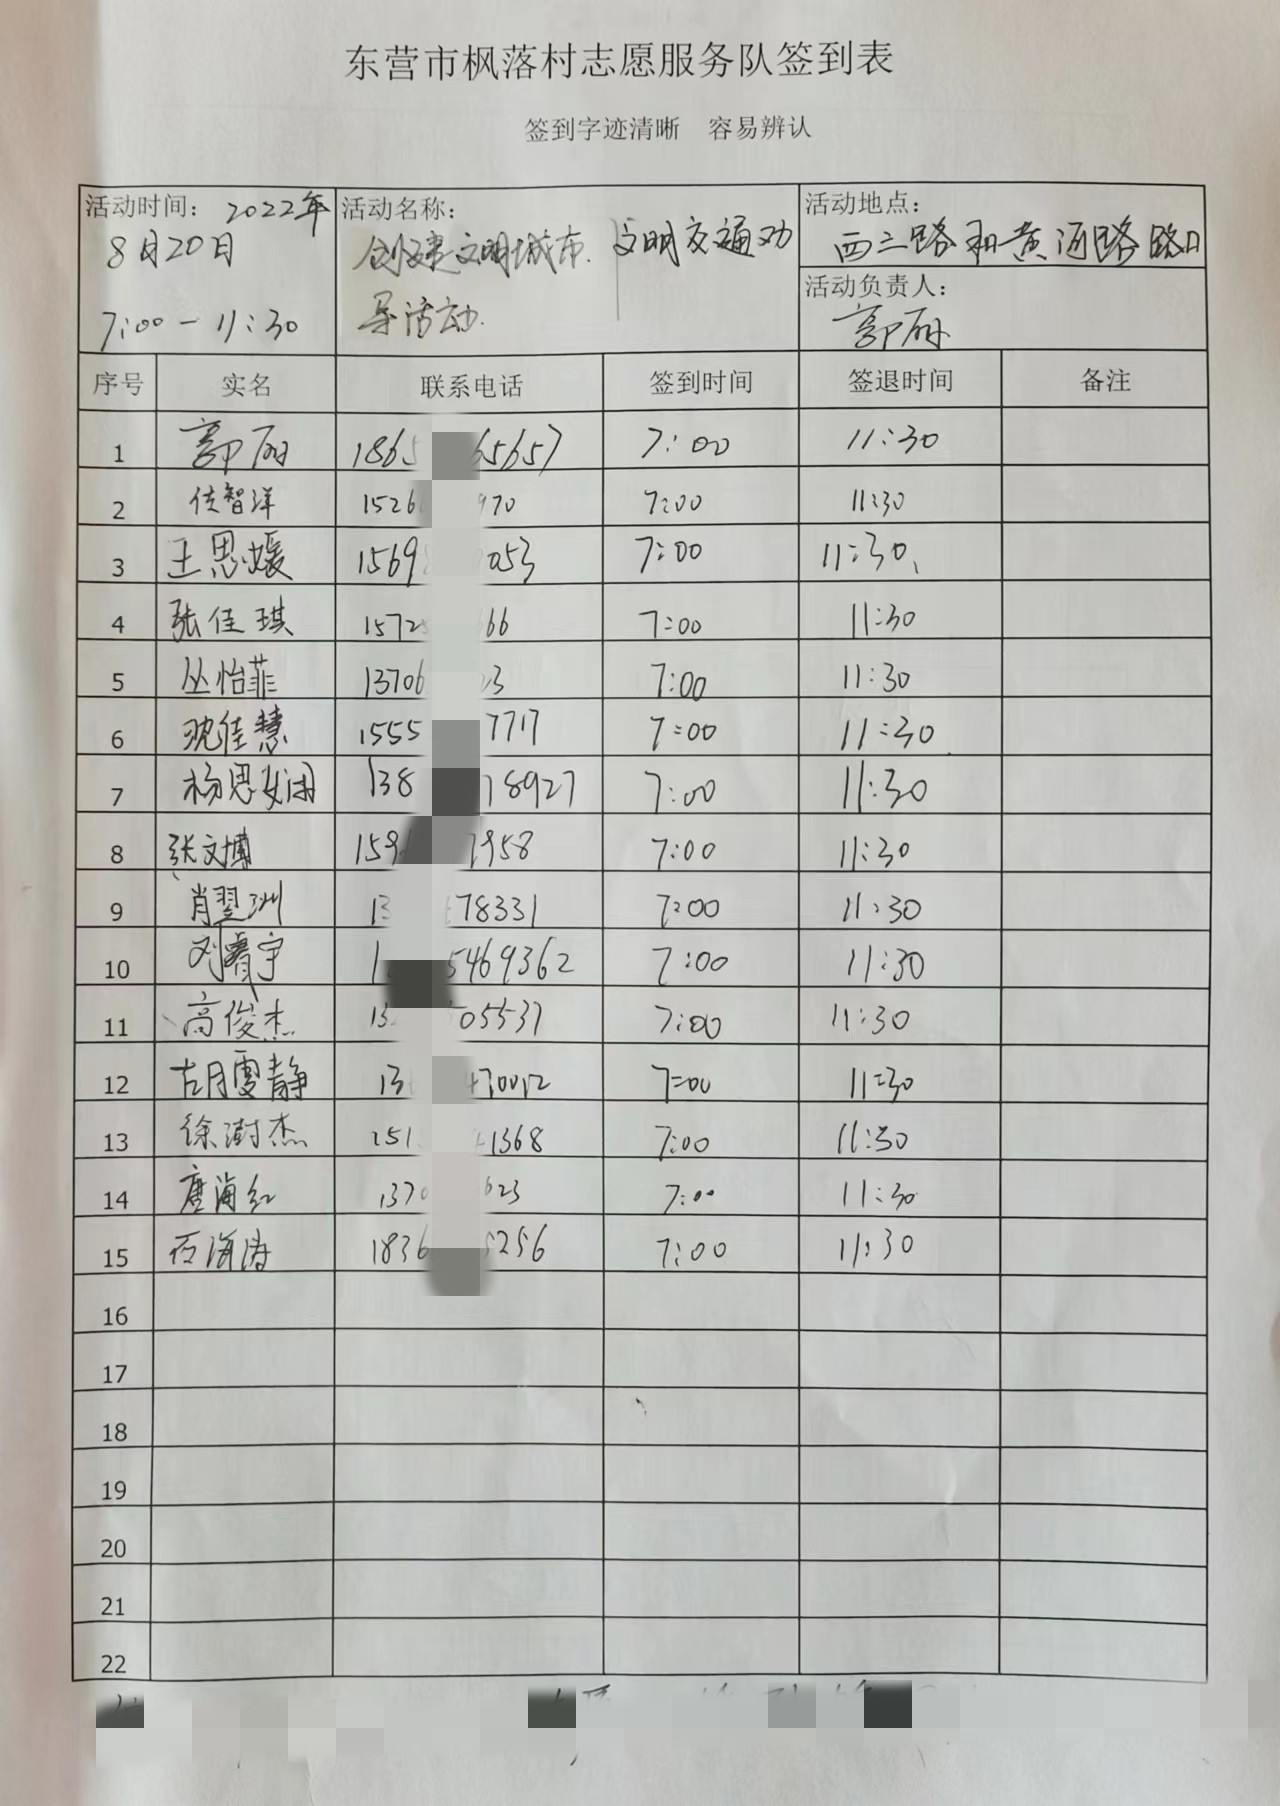 东营市枫落村志愿服务队签到表
签到字迹清晰 容易辨认
活动时间：2022年
8月20日
7:00-11:30
活动名称：
创建文明城市.文明交通劝
导活动.
活动地点：
西三路和黄河路路口
活动负责人：
郭丽
序号 实名 联系电话 签到时间 签退时间 备注
1 郭丽 1865 65657 7:00 11:30
2 智洋 1526 970 7:00 11:30
3 王思媛 1569 053 7:00 11:30
4 张佳琪 1572 666 7:00 11:30
5 丛怡菲 13706 23 7:00 11:30
6 沈佳慧 1555 7717 7:00 11:30
7 杨思娴 138 78927 7:00 11:30
8 张文博 159 2958 7:00 11:30
9 肖翌洲 13 78331 7:00 11:30
10 刘睿宇 1 5469362 7:00 11:30
11 高俊杰 13 05537 7:00 11:30
12 胡雯静 13 470012 7:00 11:30
13 徐澍杰 151 1368 7:00 11:30
14 唐海红 1370 623 7:00 11:30
15 石海涛 1836 5256 7:00 11:30
16
17
18
19
20
21
22